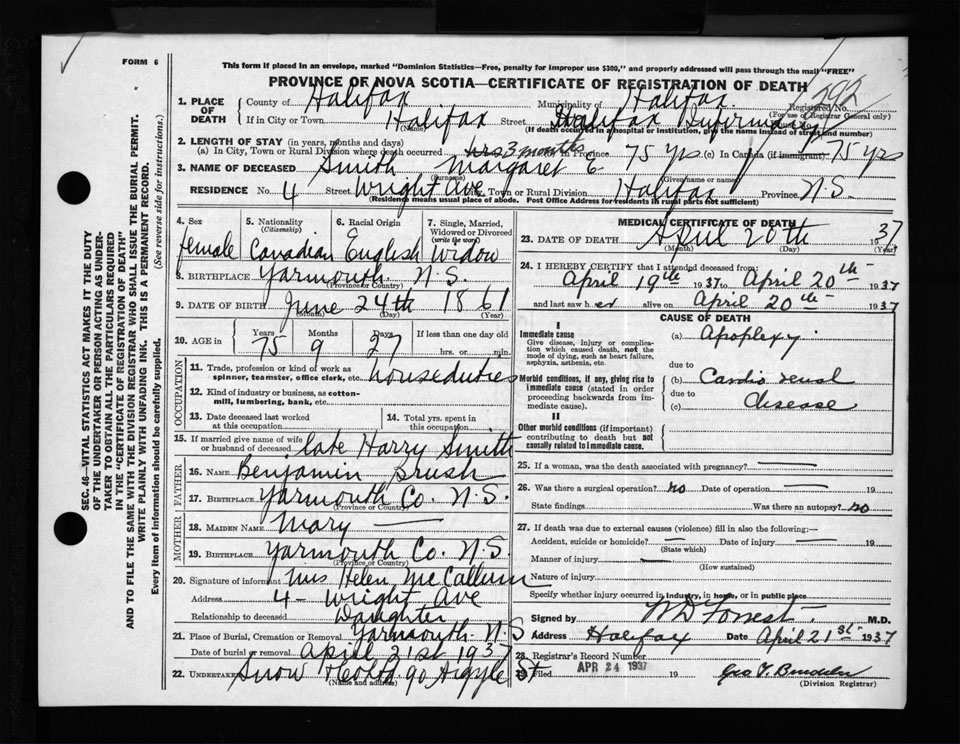 FORM 6
This form if placed in an envelope, marked "Dominion Statistics—Free, penalty for improper use $300," and properly addressed will pass through the mail "FREE"
PROVINCE OF NOVA SCOTIA—CERTIFICATE OF REGISTRATION OF DEATH
1. PLACE OF DEATH County of Halifax Municipality of Halifax Registered No. 592
(For use of Registrar General only)
If in City or Town Halifax Street Halifax Infirmary
(Name) (If death occurred in a hospital or institution, give the name instead of street and number)
2. LENGTH OF STAY (in years, months and days)
(a) In City, Town or Rural Division where death occurred 3 months in Province 75 yrs (c) In Canada (if immigrant) 75 yrs
3. NAME OF DECEASED Smith Margaret E
(Surname) (Given name or names)
RESIDENCE No. 4 Street Wright Ave City, Town or Rural Division Halifax Province N.S.
(Residence means usual place of abode. Post Office Address for residents in rural parts not sufficient)
4. Sex female
5. Nationality (Citizenship) Canadian
6. Racial Origin English
7. Single, Married, Widowed or Divorced (write the word) Widow
8. BIRTHPLACE Yarmouth N.S.
(Province or Country)
9. DATE OF BIRTH June 24th 1861
(Month) (Day) (Year)
10. AGE in Years 75 Months 9 Days 27 If less than one day old
hrs. or min.
OCCUPATION
11. Trade, profession or kind of work as spinner, teamster, office clerk, etc. houseduties
12. Kind of industry or business, as cotton-mill, lumbering, bank, etc.
13. Date deceased last worked at this occupation
14. Total yrs. spent in this occupation
15. If married give name of wife or husband of deceased late Harry Smith
FATHER
16. NAME Benjamin
17. BIRTHPLACE Yarmouth Co. N.S.
(Province or Country)
MOTHER
18. MAIDEN NAME Mary —
19. BIRTHPLACE Yarmouth Co. N.S.
(Province or Country)
20. Signature of informant Mrs Helen McCallum
Address 4 - Wright Ave
Relationship to deceased Daughter
21. Place of Burial, Cremation or Removal Yarmouth N.S
Date of burial or removal April 21st 1937
22. UNDERTAKER Snow & Co 90 Argyle St
(Name and address)
MEDICAL CERTIFICATE OF DEATH
23. DATE OF DEATH April 20th 1937
(Month) (Day) (Year)
24. I HEREBY CERTIFY that I attended deceased from:
April 19th 1937 to April 20th 1937
and last saw her alive on April 20th 1937
CAUSE OF DEATH
I
Immediate cause
Give disease, injury or complication which caused death, not the mode of dying, such as heart failure, asphyxia, asthenia, etc.
(a) Apoplexy
due to
Morbid conditions, if any, giving rise to immediate cause (stated in order proceeding backwards from immediate cause).
(b) Cardio renal
due to
(c) disease
II
Other morbid conditions (if important) contributing to death but not causally related to immediate cause.
25. If a woman, was the death associated with pregnancy? —
26. Was there a surgical operation? no Date of operation — 19
State findings Was there an autopsy? no
27. If death was due to external causes (violence) fill in also the following:—
Accident, suicide or homicide? — Date of injury — 19
(State which)
Manner of injury —
(How sustained)
Nature of injury
Specify whether injury occurred in industry, in home, or in public place
Signed by W D Forrest M.D.
Address Halifax Date April 21st 1937
28. Registrar's Record Number
29. Filed APR 24 1937 19
(Division Registrar)
SEC. 46—VITAL STATISTICS ACT MAKES IT THE DUTY
OF THE UNDERTAKER OR PERSON ACTING AS UNDER-
TAKER TO OBTAIN ALL THE PARTICULARS REQUIRED
IN THE "CERTIFICATE OF REGISTRATION OF DEATH"
AND TO FILE THE SAME WITH THE DIVISION REGISTRAR WHO SHALL ISSUE THE BURIAL PERMIT.
WRITE PLAINLY WITH UNFADING INK. THIS IS A PERMANENT RECORD.
Every item of information should be carefully supplied. (See reverse side for instructions.)